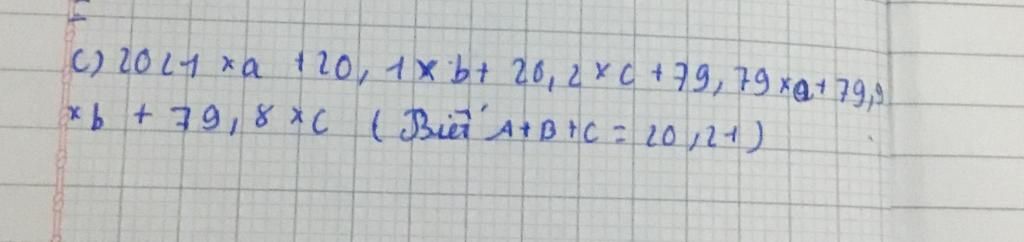 c) 20,21 × a + 20,1 × b + 20,2 × c + 79,79 × a + 79,9
× b + 79,8 × c ( Biết A + B + C = 20,21)